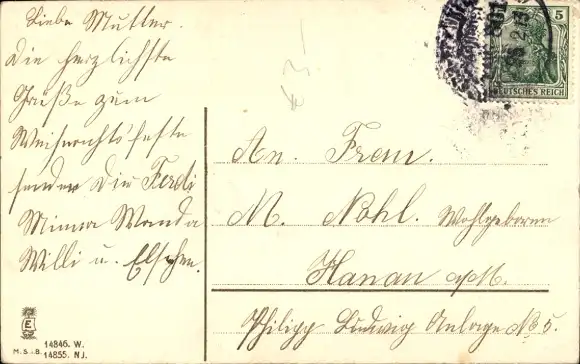 Liebe Mutter.
Die herzlichste
Grüße zum
Weihnachtsfeste
senden Dir Ferdi
Minna Wanda
Willi u. Elschen.
An. Frau.
M. Nohl. Wohlgeboren
Hanau a/M.
Philipp Ludwig Anlage No 5.
5
DEUTSCHES REICH
E
M.S.i.B.
14846. W.
14855. NJ.